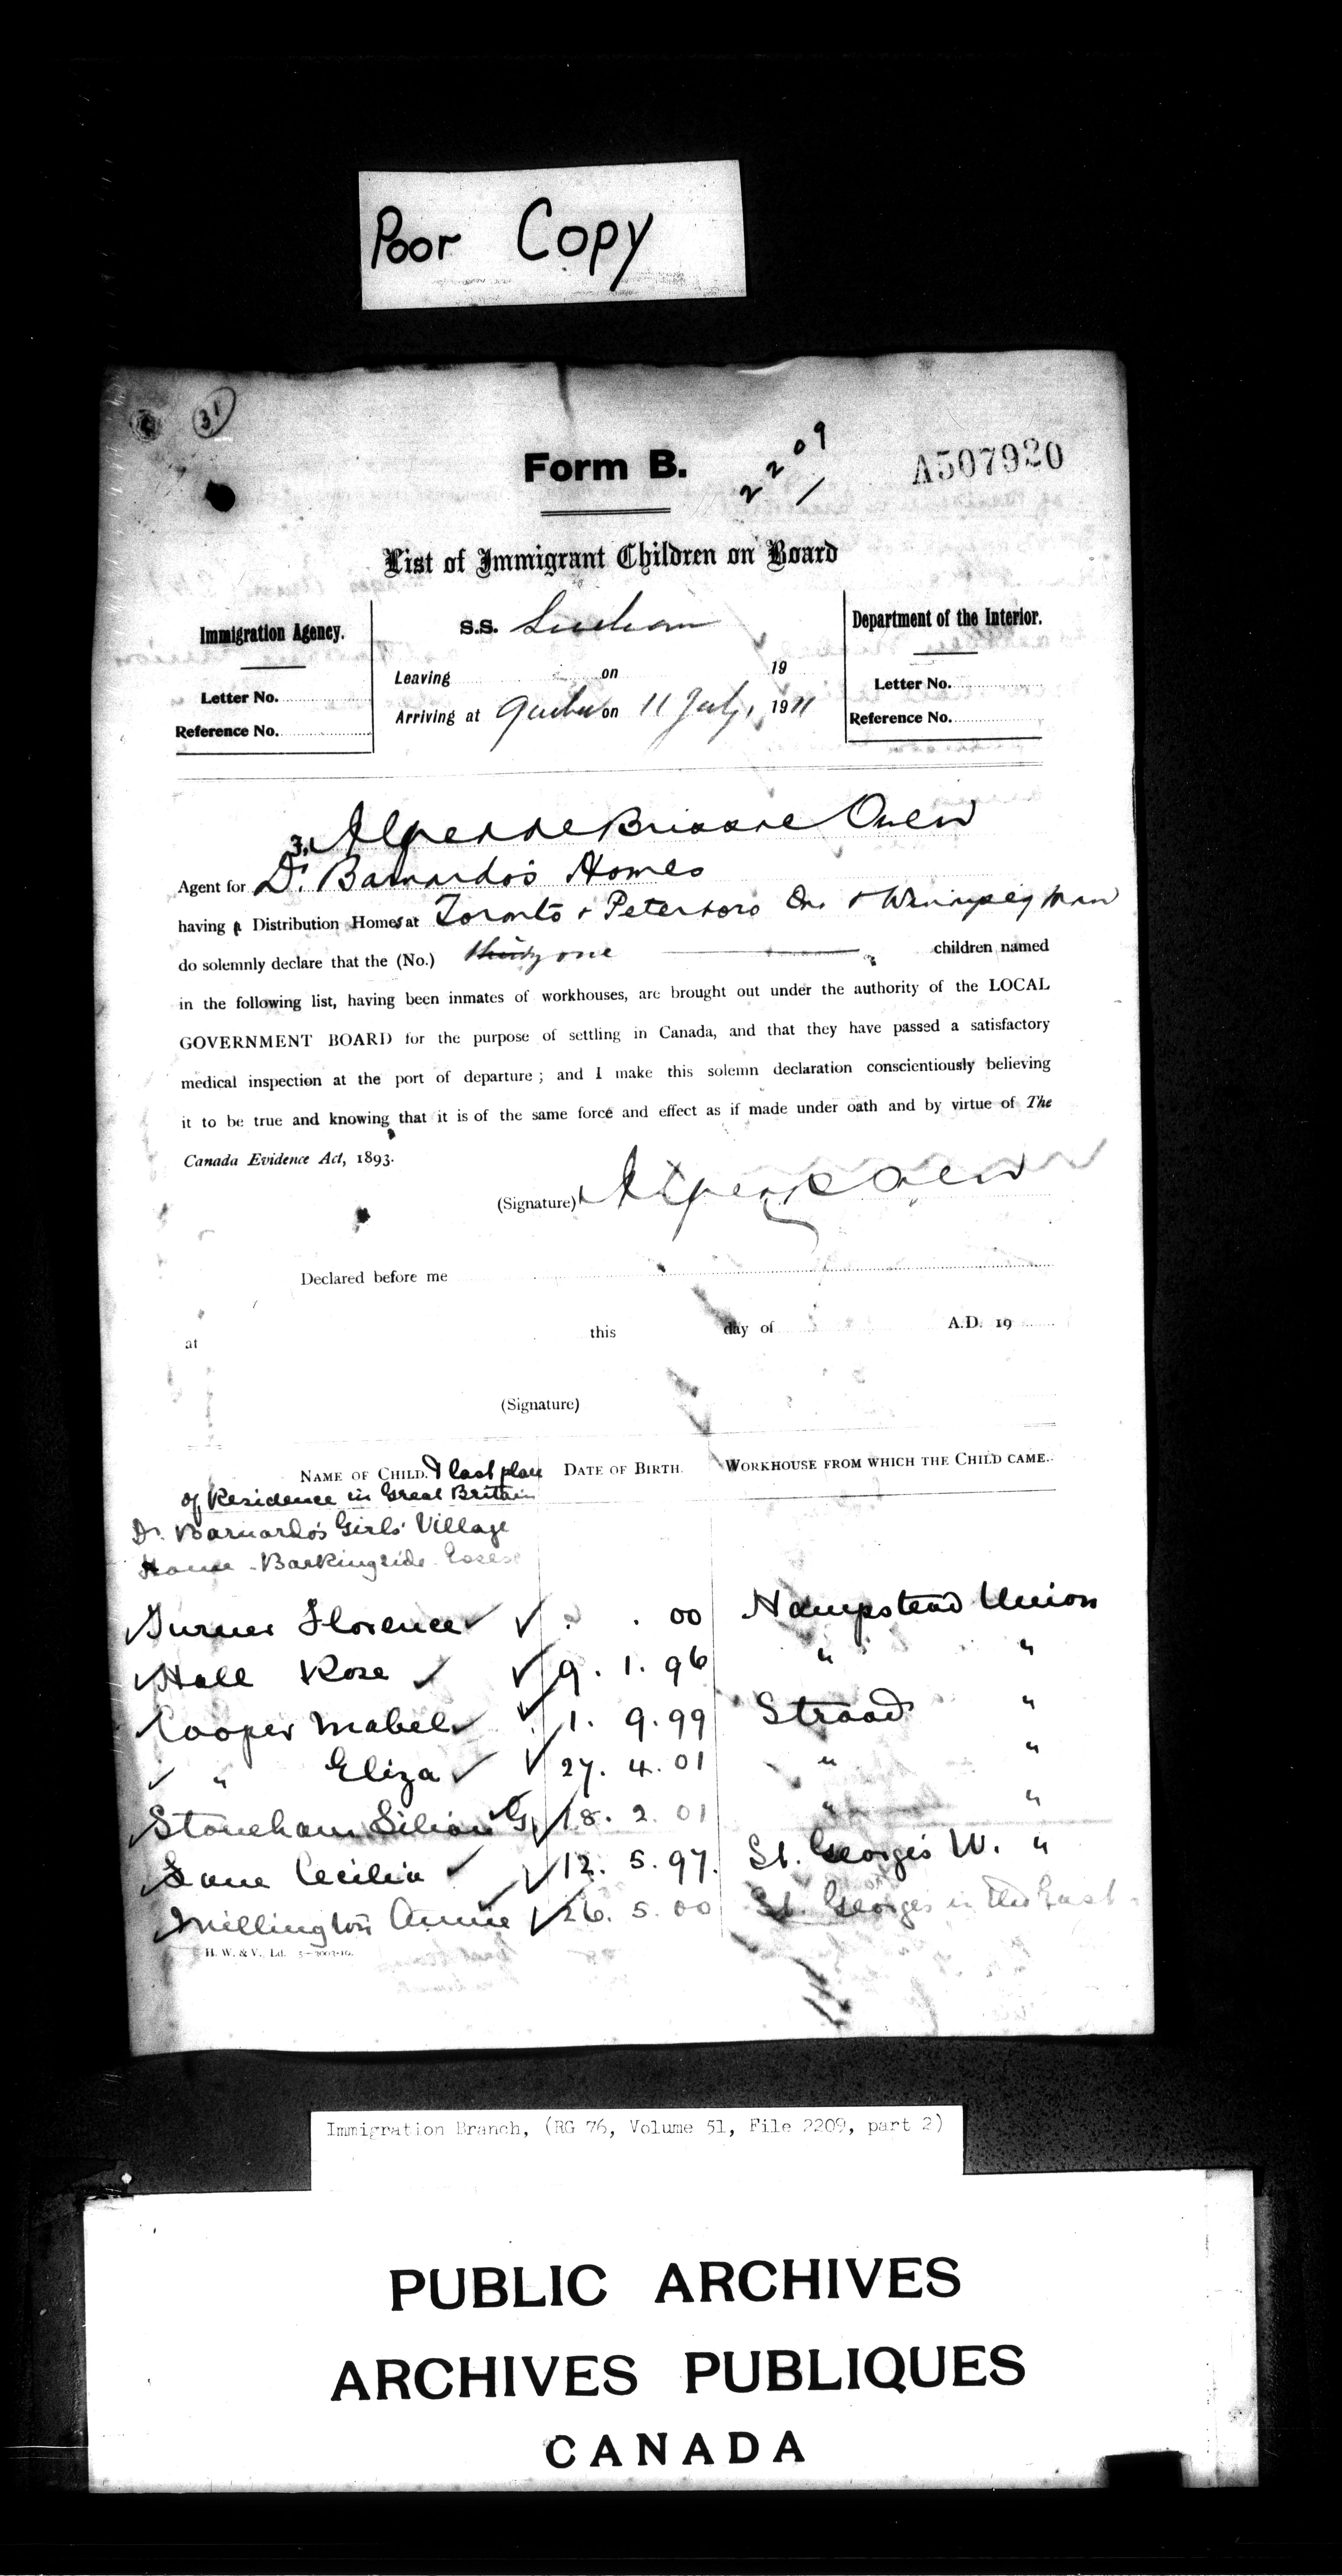 Poor Copy
31
Form B.
2209
A507920
List of Immigrant Children on Board
Immigration Agency.
Letter No.
Reference No.
S.S. Sicilian
Leaving on 19
Arriving at Quebec on 11 July, 1911
Department of the Interior.
Letter No.
Reference No.
I, Alfred Owen
Agent for Dr. Barnardo's Homes
having a Distribution Homes at Toronto & Peterboro On. & Winnipeg Man
do solemnly declare that the (No.) thirty one children named
in the following list, having been inmates of workhouses, are brought out under the authority of the LOCAL
GOVERNMENT BOARD for the purpose of settling in Canada, and that they have passed a satisfactory
medical inspection at the port of departure; and I make this solemn declaration conscientiously believing
it to be true and knowing that it is of the same force and effect as if made under oath and by virtue of The
Canada Evidence Act, 1893.
(Signature) Owen
Declared before me
at this day of A.D. 19
(Signature)
NAME OF CHILD. & last place DATE OF BIRTH. WORKHOUSE FROM WHICH THE CHILD CAME.
of Residence in Great Britain
Dr. Barnardo's Girls' Village
Home - Barkingside Essex
Florence . . 00 Hampstead Union
Hall Rose 9. 1. 96 " "
Cooper Mabel 1. 9. 99 Strood "
" Eliza 27. 4. 01 " "
Stoneham Lilian G. 18. 2. 01 " "
Cecilia 12. 5. 97. St. George's W. "
Millington Annie 26. 5. 00 St. George's in the East
H. W. & V., Ld.
Immigration Branch, (RG 76, Volume 51, File 2209, part 2)
PUBLIC ARCHIVES
ARCHIVES PUBLIQUES
CANADA